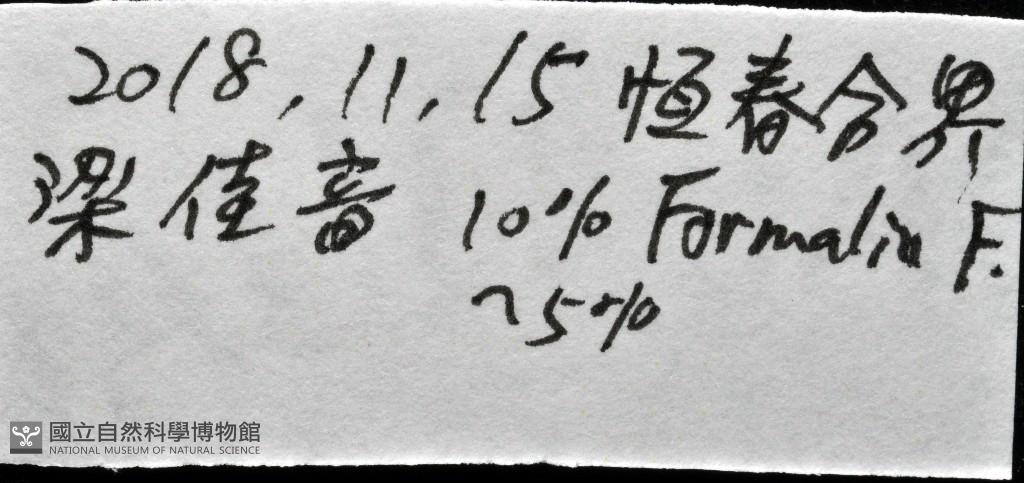 2018.11.15 恆春合界
梁佳音 10% Formalin F.
~5%
國立自然科學博物館
NATIONAL MUSEUM OF NATURAL SCIENCE